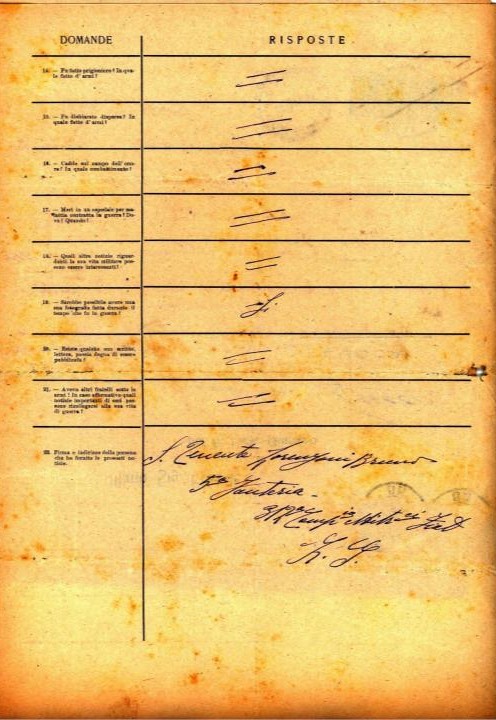 DOMANDE
RISPOSTE
14. — Fu fatto prigioniero? In qua-
le fatto d'armi?
15. — Fu dichiarato disperso? In
quale fatto d'armi?
16. — Cadde sul campo dell'ono-
re? In quale combattimento?
17. — Morì in un ospedale per ma-
lattia contratta in guerra? Do-
ve? Quando?
18. — Quali altre notizie riguar-
danti la sua vita militare pos-
sono essere interessanti?
19. — Sarebbe possibile avere una
sua fotografia fatta durante il
tempo che fu in guerra?
Si
20. — Esiste qualche suo scritto,
lettera, poesia degna di essere
pubblicata?
21. — Aveva altri fratelli sotto le
armi? In caso affermativo quali
notizie importanti di essi pos-
sono ricollegarsi alla sua vita
di guerra?
22. Firma e indirizzo della persona
che ha fornito le presenti no-
tizie.
S. Tenente Lorenzoni Bruno
5ª Fanteria -
Comp
Z. G.